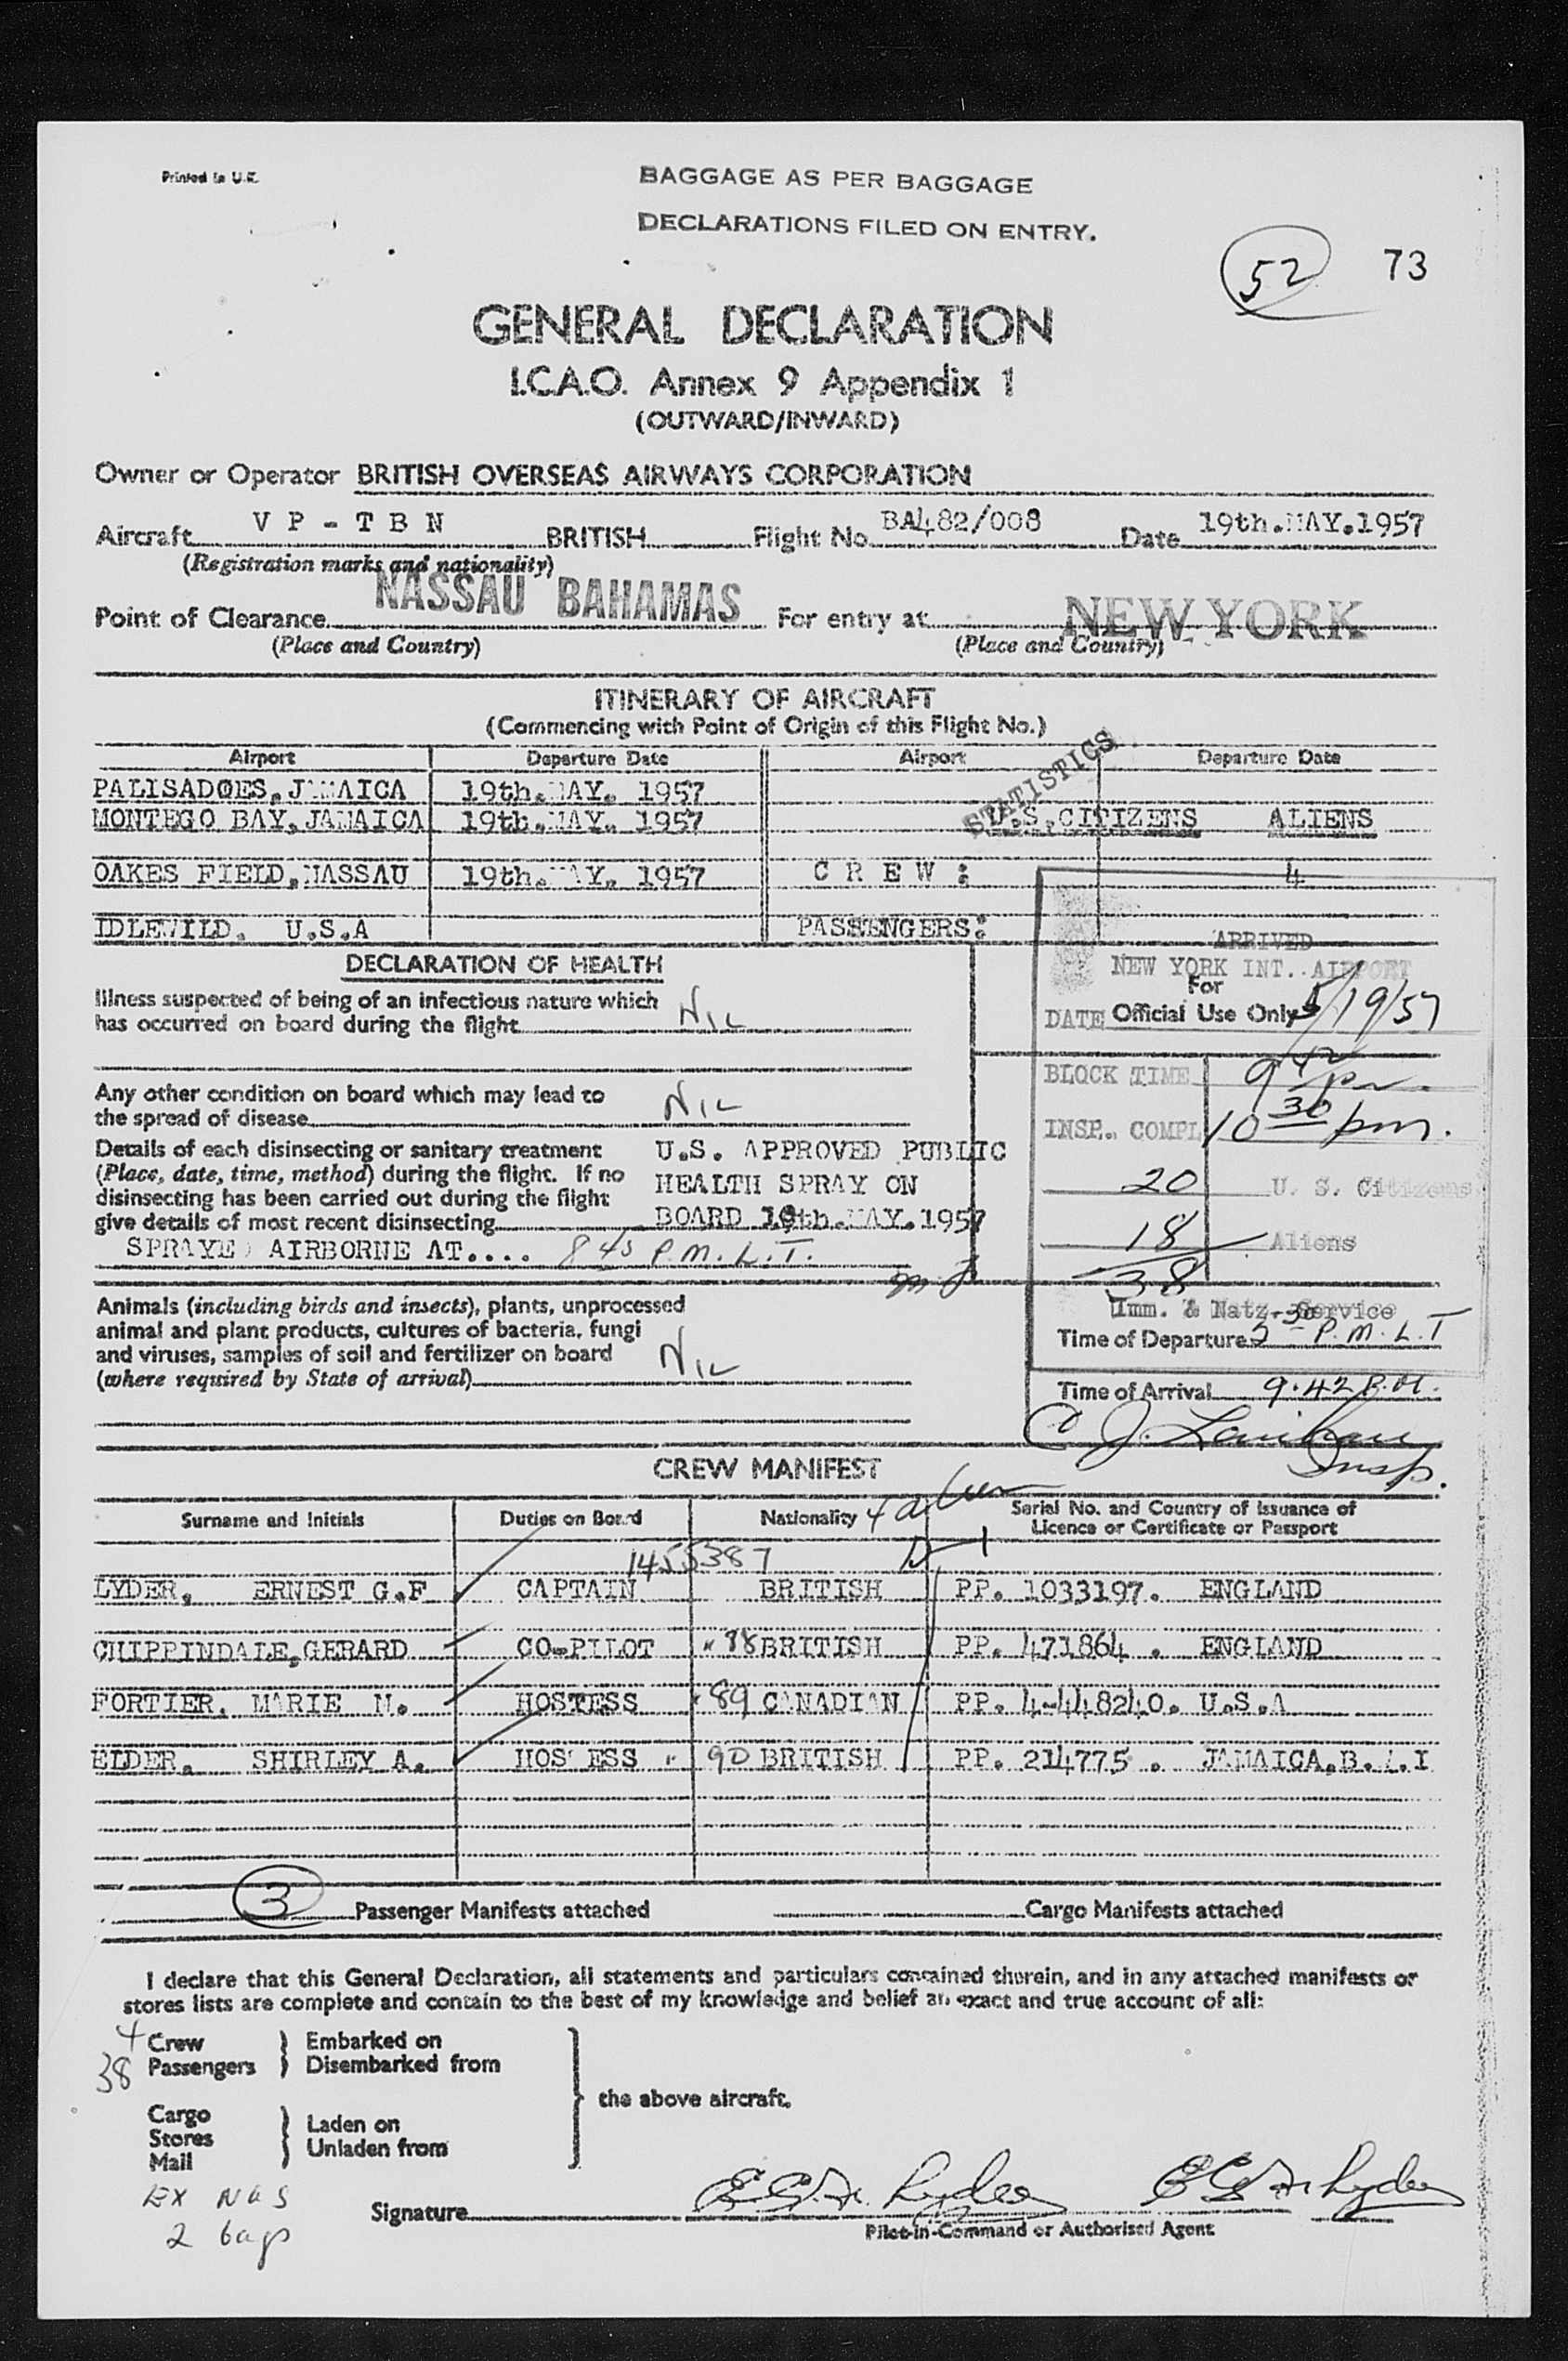 Printed in U.K.
BAGGAGE AS PER BAGGAGE
DECLARATIONS FILED ON ENTRY.
52 73
GENERAL DECLARATION
I.C.A.O. Annex 9 Appendix 1
(OUTWARD/INWARD)
Owner or Operator BRITISH OVERSEAS AIRWAYS CORPORATION
Aircraft VP-TBN BRITISH Flight No. BA482/008 Date 19th.MAY.1957
(Registration marks and nationality)
Point of Clearance NASSAU BAHAMAS For entry at NEW YORK
(Place and Country) (Place and Country)
ITINERARY OF AIRCRAFT
(Commencing with Point of Origin of this Flight No.)
Airport Departure Date Airport Departure Date
STATISTICS
PALISADOES, JAMAICA 19th.MAY. 1957
MONTEGO BAY, JAMAICA 19th.MAY. 1957 U.S.CITIZENS ALIENS
OAKES FIELD, NASSAU 19th.MAY. 1957 CREW: 4
IDLEWILD. U.S.A PASSENGERS:
DECLARATION OF HEALTH
Illness suspected of being of an infectious nature which
has occurred on board during the flight NIL
Any other condition on board which may lead to
the spread of disease NIL
Details of each disinsecting or sanitary treatment U.S. APPROVED PUBLIC
(Place, date, time, method) during the flight. If no HEALTH SPRAY ON
disinsecting has been carried out during the flight
give details of most recent disinsecting BOARD 19th.MAY.1957
SPRAYED AIRBORNE AT.... 845 P.M.L.T.
ARRIVED
NEW YORK INT. AIRPORT
For
DATE Official Use Only 5/19/57
BLOCK TIME 9 42 pm.
INSP. COMPL 10 30 pm.
20 U. S. Citizens
18 Aliens
38
Imm. & Natz. Service
Time of Departure 5 30 P.M.L.T
Time of Arrival 9.42 P.M.
C J. Lanihan
Insp.
Animals (including birds and insects), plants, unprocessed
animal and plant products, cultures of bacteria, fungi
and viruses, samples of soil and fertilizer on board NIL
(where required by State of arrival)
CREW MANIFEST
Surname and Initials Duties on Board Nationality 4 alien Serial No. and Country of Issuance of
Licence or Certificate or Passport
1455387 D-1
LYDER, ERNEST G.F CAPTAIN BRITISH PP. 1033197. ENGLAND
CHIPPINDALE, GERARD CO-PILOT " 88 BRITISH PP. 471864 . ENGLAND
FORTIER. MARIE M. HOSTESS " 89 CANADIAN PP. 4-448240. U.S.A
ELDER. SHIRLEY A. HOSTESS " 90 BRITISH PP. 214775 . JAMAICA,B.W.I
3 Passenger Manifests attached Cargo Manifests attached
I declare that this General Declaration, all statements and particulars contained therein, and in any attached manifests or
stores lists are complete and contain to the best of my knowledge and belief an exact and true account of all:
4 Crew Embarked on
38 Passengers Disembarked from
the above aircraft.
Cargo
Stores Laden on
Mail Unladen from
EX NAS
2 bags
Signature E.G.F. Lyder E G F Lyder
Pilot-in-Command or Authorised Agent